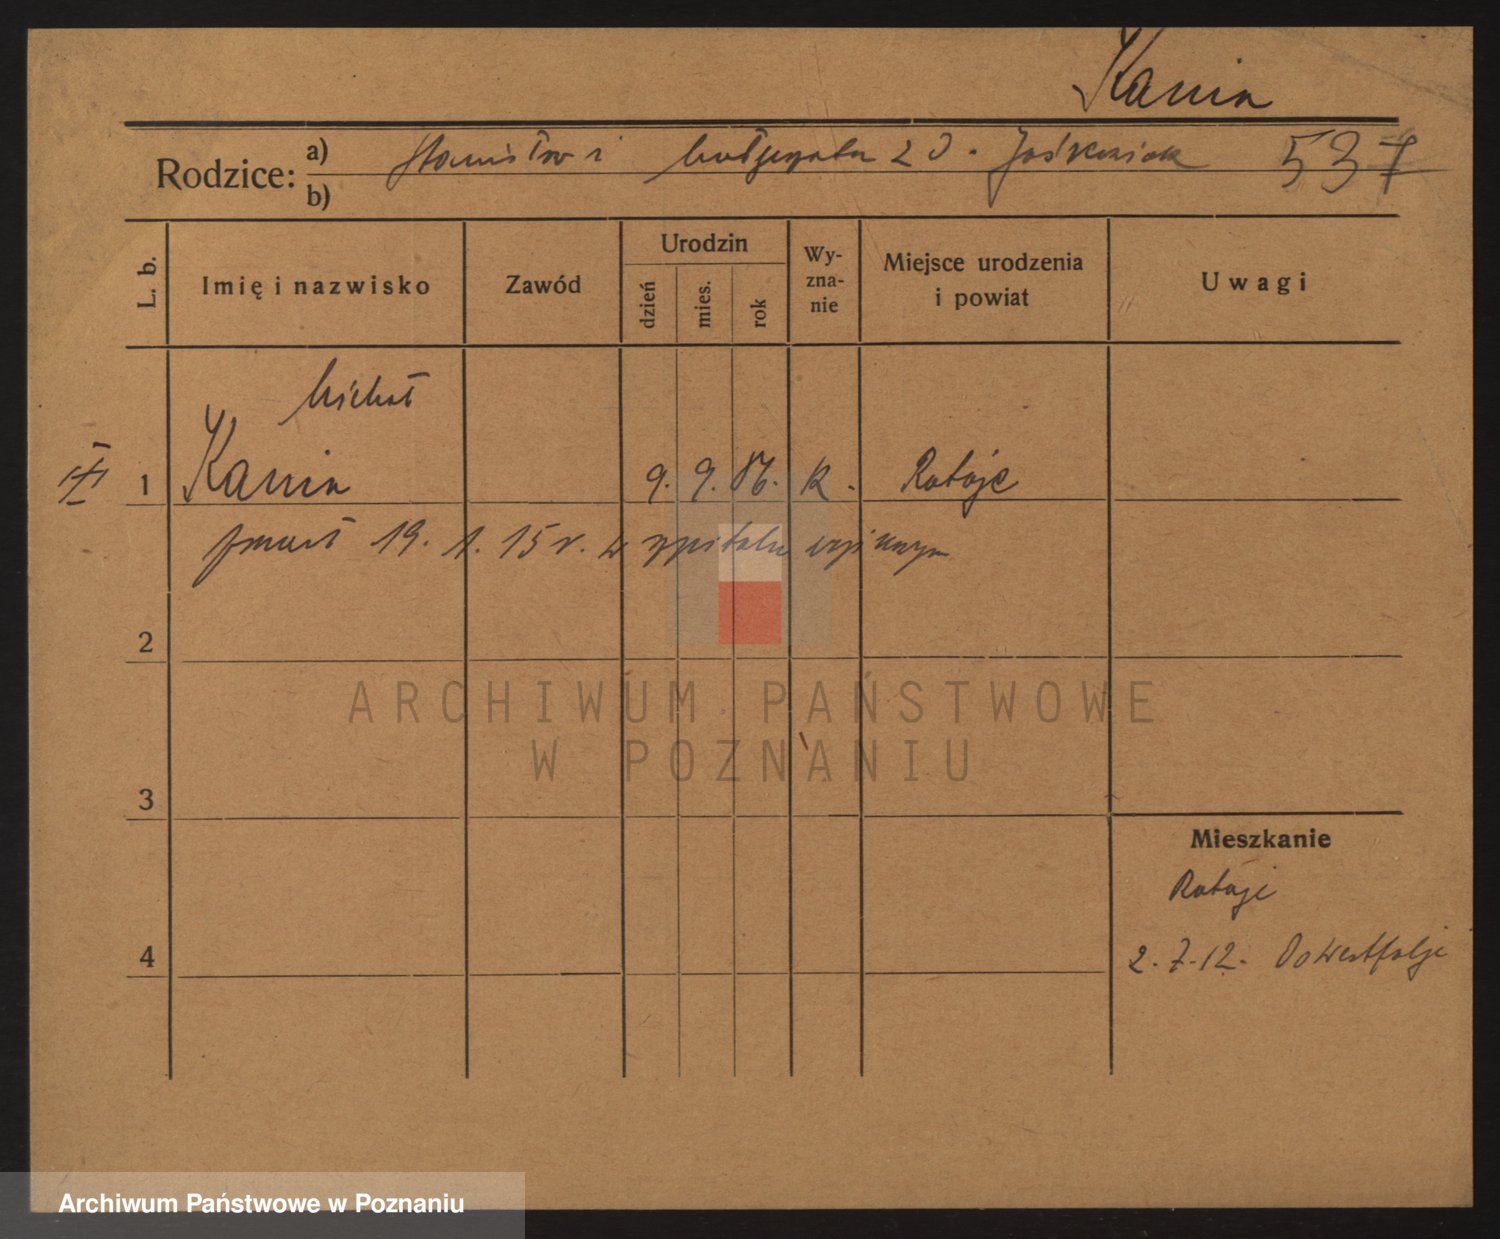 Kania
Rodzice: a) Stanisław i Małgorzata z D. Jaśkowiak 537
b)
L. b. Imię i nazwisko Zawód Urodzin dzień mies. rok Wy-zna-nie Miejsce urodzenia i powiat Uwagi
Michał
1 Kania 9. 9. 86. k. Rataje
zmarł 19. 1. 15 r. w szpitalu wojennym
2
ARCHIWUM PAŃSTWOWE
W POZNANIU
3
Mieszkanie
Rataje
4 2.7.12. Do Westfalje
Archiwum Państwowe w Poznaniu